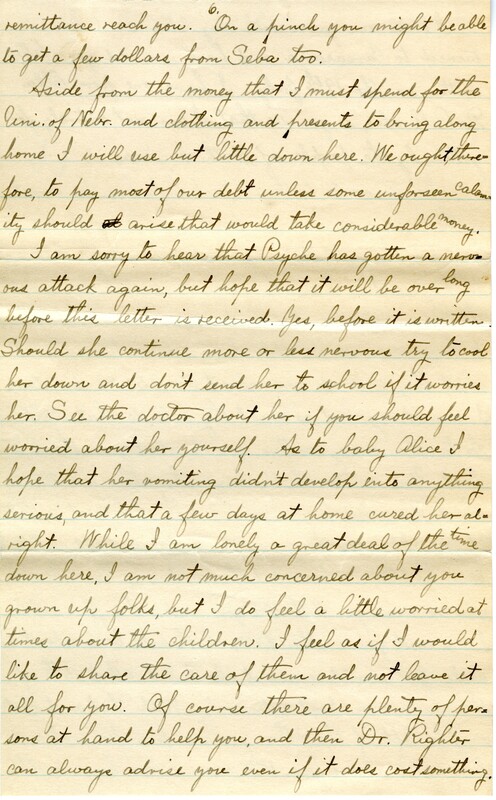 6.
remittance reach you. On a pinch you might be able
to get a few dollars from Seba too.
Aside from the money that I must spend for the
Uni. of Nebr. and clothing and presents to bring along
home I will use but little down here. We ought there-
fore, to pay most of our debt unless some unforseen calam-
ity should arise that would take considerable money.
I am sorry to hear that Psyche has gotten a nerv-
ous attack again, but hope that it will be over long
before this letter is received. Yes, before it is written.
Should she continue more or less nervous try to cool
her down and don't send her to school if it worries
her. See the doctor about her if you should feel
worried about her yourself. As to baby Alice I
hope that her vomiting didn't develop into anything
serious, and that a few days at home cured her al-
right. While I am lonely a great deal of the time
down here, I am not much concerned about you
grown up folks, but I do feel a little worried at
times about the children. I feel as if I would
like to share the care of them and not leave it
all for you. Of course there are plenty of per-
sons at hand to help you, and then Dr. Righter
can always advise you even if it does cost something.